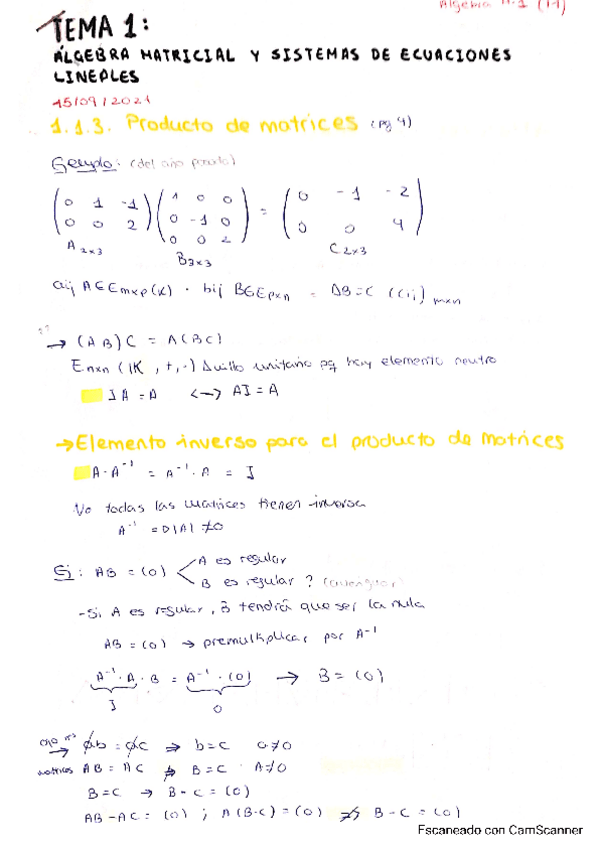 Álgebra
TEMA 1:
ÁLGEBRA MATRICIAL Y SISTEMAS DE ECUACIONES
LINEALES
15/09/2021
1.1.3. Producto de matrices (pg 4)
Ejemplo: (del año pasado)
(0 1 -1) (1 0 0) = (0 -1 -2)
(0 0 2) (0 -1 0) (0 0 4)
(0 0 2)
A 2x3 B 3x3 C 2x3
aij A∈Emxp(K) · bij B∈Epxn = AB=C (cij) mxn
→ (AB)C = A(BC)
Enxn (IK, +, ·) Anillo unitario pq hay elemento neutro
IA = A <-> AI = A
→ Elemento inverso para el producto de matrices
A·A⁻¹ = A⁻¹·A = I
No todas las matrices tienen inversa
A⁻¹ = D|A| ≠ 0
Si: AB = (0) A es regular
B es regular ? (averiguar)
- Si A es regular, B tendrá que ser la nula
AB = (0) → premultiplicar por A⁻¹
A⁻¹·A·B = A⁻¹·(0) → B = (0)
I 0
ab = ac ⇒ b = c a≠0
matrices AB = AC ⇏ B = C A≠0
B = C → B - C = (0)
AB - AC = (0) ; A(B-C) = (0) ⇏ B - C = (0)
Escaneado con CamScanner